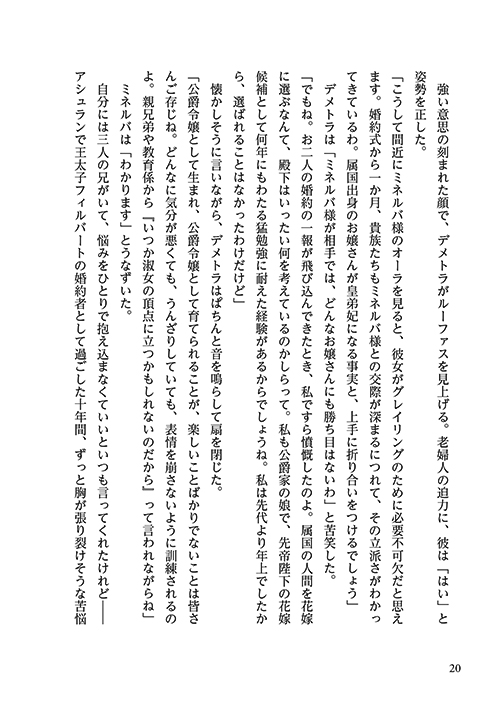 強い意思の刻まれた顔で、デメトラがルーファスを見上げる。老婦人の迫力に、彼は「はい」と
姿勢を正した。
「こうして間近にミネルバ様のオーラを見ると、彼女がグレイリングのために必要不可欠だと思え
ます。婚約式から一か月、貴族たちもミネルバ様との交際が深まるにつれて、その立派さがわかっ
てきているわ。属国出身のお嬢さんが皇弟妃になる事実と、上手に折り合いをつけるでしょう」
　デメトラは「ミネルバ様が相手では、どんなお嬢さんにも勝ち目はないわ」と苦笑した。
「でもね。お二人の婚約の一報が飛び込んできたとき、私ですら憤慨したのよ。属国の人間を花嫁
に選ぶなんて、殿下はいったい何を考えているのかしらって。私も公爵家の娘で、先帝陛下の花嫁
候補として何年にもわたる猛勉強に耐えた経験があるからでしょうね。私は先代より年上でしたか
ら、選ばれることはなかったわけだけど」
　懐かしそうに言いながら、デメトラはぱちんと音を鳴らして扇を閉じた。
「公爵令嬢として生まれ、公爵令嬢として育てられることが、楽しいことばかりでないことは皆さ
んご存じね。どんなに気分が悪くても、うんざりしていても、表情を崩さないように訓練されるの
よ。親兄弟や教育係から『いつか淑女の頂点に立つかもしれないのだから』って言われながらね」
　ミネルバは「わかります」とうなずいた。
　自分には三人の兄がいて、悩みをひとりで抱え込まなくていいといつも言ってくれたけれど――
アシュランで王太子フィルバートの婚約者として過ごした十年間、ずっと胸が張り裂けそうな苦悩
20